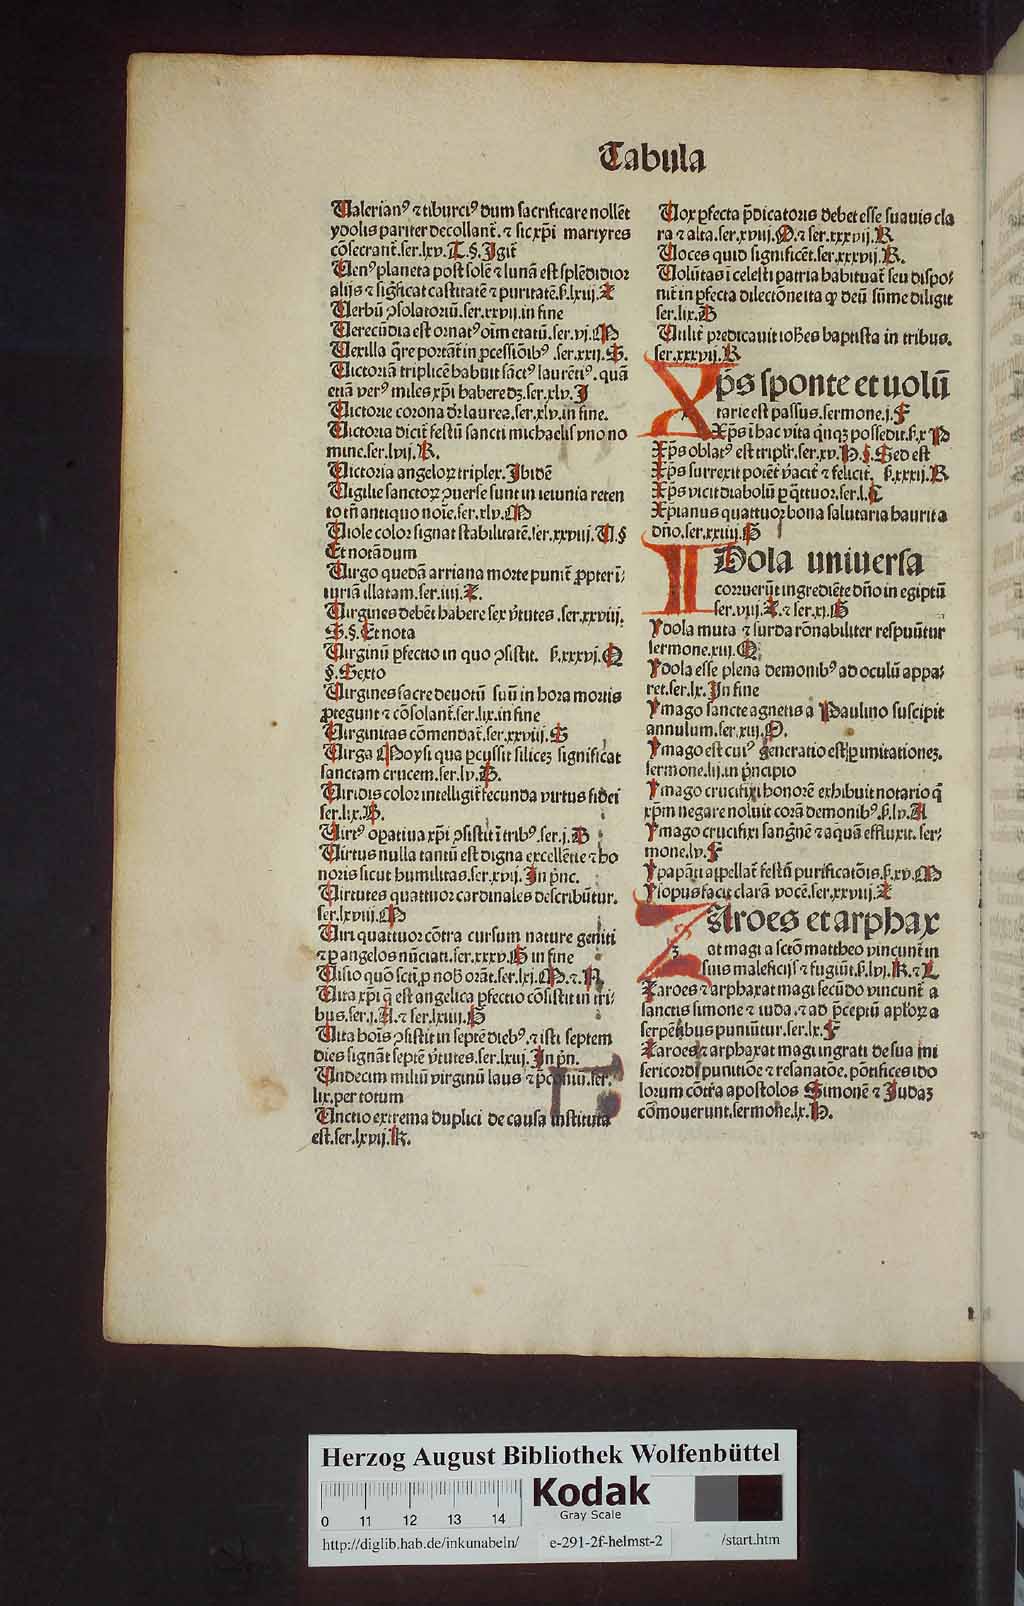 Tabula
Ualerianꝰ ⁊ tiburciꝰ dum sacrificare nollēt
ydolis pariter decollant̄. ⁊ sic xp̄i martyres
cōsecrant̄.ser.lxv.T.§.Igit̄
Uenꝰ planeta post solē ⁊ lunā est splēdidior
alijs ⁊ significat castitatē ⁊ puritatē.ẜ.lxiij.X
Uerbū ꝯsolatoriū.ser.xxvij.in fine
Uerecūdia est ornatꝰ oīm etatū.ser.vj.M
Uexilla q̄re portāt̄ in ꝓcessiōibꝰ .ser.xxij.S.
Uictoriā triplicē habuit sāctꝰ laurētiꝰ. quā
etiā verꝰ miles xp̄i habere dꝫ.ser.xlv.I
Uictorie corona dr̄ laurea.ser.xlv.in fine.
Uictoria dicit̄ festū sancti michaelis vno no
mine.ser.lvij.R.
Uictoria angeloꝝ triplex. Ibidē
Uigilie sanctoꝝ ꝯuerse sunt in ieiunia reten
to tn̄ antiquo noīe.ser.xlv.M
Uiole color signat stabilitatē.ser.xxviij.U.§
Et notādum
Uirgo quedā arriana morte punit̄ ꝓpter ī⸗
iuriā illatam.ser.iiij.X.
Uirgines debēt habere sex v̄tutes .ser.xxviij.
S.§.Et nota
Uirginū ꝑfectio in quo ꝯsistit. ẜ.xxxvj.Q
§.Sexto
Uirgines sacre deuotū suū in hora mortis
ꝓtegunt ⁊ cōsolant̄.ser.lix.in fine
Uirginitas cōmendat̄.ser.xxviij.S
Uirga Moysi qua ꝑcussit siliceꝫ significat
sanctam crucem.ser.lv.H.
Uiridis color intelligit̄ fecunda virtus fidei
ser.lix.B.
Uirꝰ oꝑatiua xp̄i ꝯsistit ī tribꝰ.ser.j.B
Uirtus nulla tantū est digna excellētie ⁊ ho
noris sicut humilitas.ser.xvij.In p̄nc.
Uirtutes quattuor cardinales describūtur.
ser.lxviij.M
Uiri quattuor cōtra cursum nature geniti
⁊ ꝑ angelos nūciati.ser.xxxv.G in fine
Uisio quō scti ꝓ nob̄ orāt.ser.lxj.M.⁊.N
Uita xp̄i q̄ est angelica ꝑfectio cōsistit in tri⸗
bus.ser.j.A.⁊ ser.lxiiij.H
Uita hoīs ꝯsistit in septē diebꝰ.⁊ isti septem
dies signāt septē v̄tutes.ser.lxiij.In p̄n.
Undecim miliū virginū laus ⁊ p̄coniū.ser.
lix.per totum
Unctio extrema duplici de causa instituta
est.ser.lxvij.K.
Uox ꝑfecta p̄dicatoris debet esse suauis cla
ra ⁊ alta.ser.xviij.O.⁊ ser.xxxvij.R
Uoces quid significēt.ser.xxxvij.R.
Uolūtas ī celesti patria habituat̄ seu dispo⸗
nit̄ in ꝑfecta dilectōne ita ꝙ deū sūme diligit
ser.lix.B
Utilit̄ predicauit ioħes baptista in tribus.
ser.xxxvij.R
Xp̄s sponte et uolū
tarie est passus.sermone.j.F
Xp̄s ī hac vita q̄nqꝫ possedit.ẜ.x.P
Xp̄s oblatꝰ est triplr̄.ser.xv.P.§.Sed est
Xp̄s surrexit potēt̄ v̄acit̄ ⁊ felicit̄. ẜ.xxxij.R
Xp̄s vicit diabolū ꝑ q̄ttuor.ser.l.T
Xp̄ianus quattuor bona salutaria haurit a
dn̄o.ser.xxiiij.H
YDola uniuersa
corruerūt ingrediēte dn̄o in egiptū
ser.viij.X.⁊ ser.xj.G
Ydola muta ⁊ surda rōnabiliter respuūtur
sermone.xiij.Q
Ydola esse plena demonibꝰ ad oculū appa⸗
ret.ser.lx.In fine
Ymago sancte agnetis a Paulino suscipit
annulum.ser.xiij.O.
Ymago est cuiꝰ generatio est ꝑ imitationeꝫ.
sermone.lij.in p̄ncipio
Ymago crucifixi honorē exhibuit notario q̄
xp̄m negare noluit corā demonibꝰ.ẜ.lv.A
Ymago crucifixi sangnē ⁊ aquā effluxit.ser⸗
mone.lv.F
Ypapāti appellat̄ festū purificatōis.ẜ.xv.M
Ysopus facit clarā vocē.ser.xxviij.X
ZAroes et arphax
at magi a sctō mattheo vincunt̄ in
suis maleficijs ⁊ fugiūt.ẜ.lvj.K.⁊ L
Zaroes ⁊ arphaxat magi secūdo vincunt̄ a
sanctis simone ⁊ iuda.⁊ ad p̄ceptū apl̄oꝝ a
serpētibus puniūtur.ser.lx.F
Zaroes ⁊ arphaxat magi ingrati de sua mi
sericordi punitiōe ⁊ resanatōe. pōtifices ido
lorum cōtra apostolos Simonē ⁊ Iudaꝫ
cōmouerunt.sermone.lx.H.
Herzog August Bibliothek Wolfenbüttel
Kodak
Gray Scale
0 11 12 13 14
http://diglib.hab.de/inkunabeln/ e-291-2f-helmst-2 /start.htm